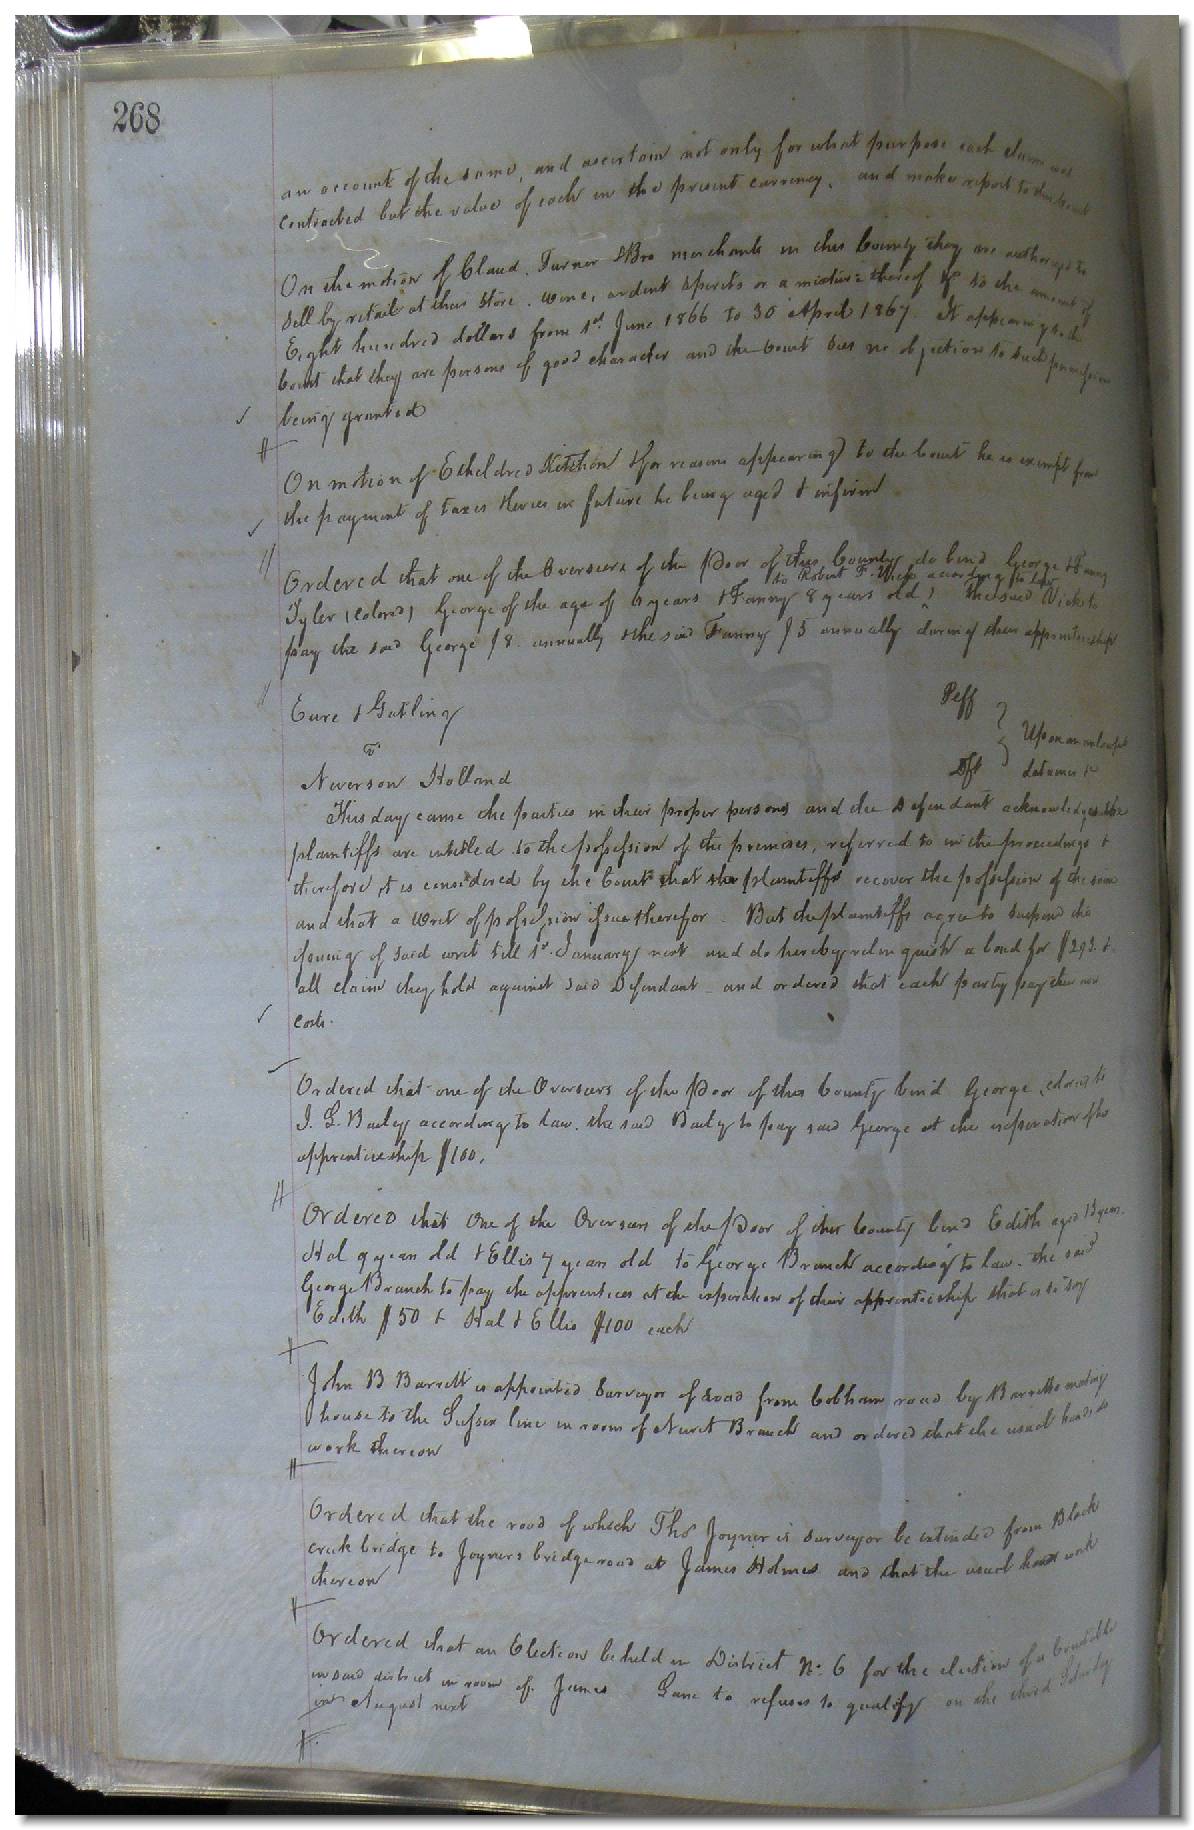 268
an account of the same, and ascertain not only for what purpose each claim was
contracted but the value of each in the present currency, and make report to the Court
On the motion of Claud. Turner & Bro merchants in this County they are authorized to
sell by retail at their store, wine, ardent spirits or a mixture thereof to the amount of
Eight hundred dollars from 1st June 1866 to 30 April 1867. It appearing to the
Court that they are persons of good character and the Court sees no objection to such permission
being granted
On motion of Etheldred Kitchen & for reasons appearing to the Court he is exempt from
the payment of taxes &levies in future he being aged & infirm
Ordered that one of the Overseers of the Poor of this County do bind George & Fanny
to Robert F. Vicks according to law
Tyler (Colored) George of the age of years & Fanny 8 years old, the said Vicks to
pay the said George $8. annually & the said Fanny $5 annually during their apprenticeship
Eure & Gatling Peff
v Upon an unlawful
Neverson Holland Dft detainer &c
This day came the parties in their proper persons and the Defendant acknowledges the
plaintiffs are intitled to the possession of the premises, referred to in the proceedings &
therefore it is considered by the Court that the plaintiffs recover the possession of the same
and that a writ of possession issue therefor. But the plaintiffs agree to suspend the
issuing of said writ till 1st January next and do hereby relinquish a bond for $293. &
all claim they hold against said Defendant and ordered that each party pay their own
costs.
Ordered that one of the Overseers of the Poor of this County bind George, colored to
J. G. Baily according to law. the said Baily to pay said George at the expiration of his
apprenticeship $100.
Ordered that one of the Overseers of the Poor of this County bind Edith aged 13 years.
Hal 9 year old & Ellis 7 year old to George Branch according to law. the said
George Branch to pay the apprentices at the expiration of their apprenticeship that is to say
Edith $50 & Hal & Ellis $100 each
John B Barrett is appointed Surveyor of road from Cobham road by Barretts meeting
house to the Sussex line in room of Newit Branch and ordered that the usual hands do
work thereon
Ordered that the road of which Thos Joyner is surveyor be extended from Black
creek bridge to Joyners bridge road at James Holmes and that the usual hands work
thereon
Ordered that an Election be held in District No. 6 for the election of a Constable
in said district in room of James Gane to refuses to qualify on the third Saturday
in August next